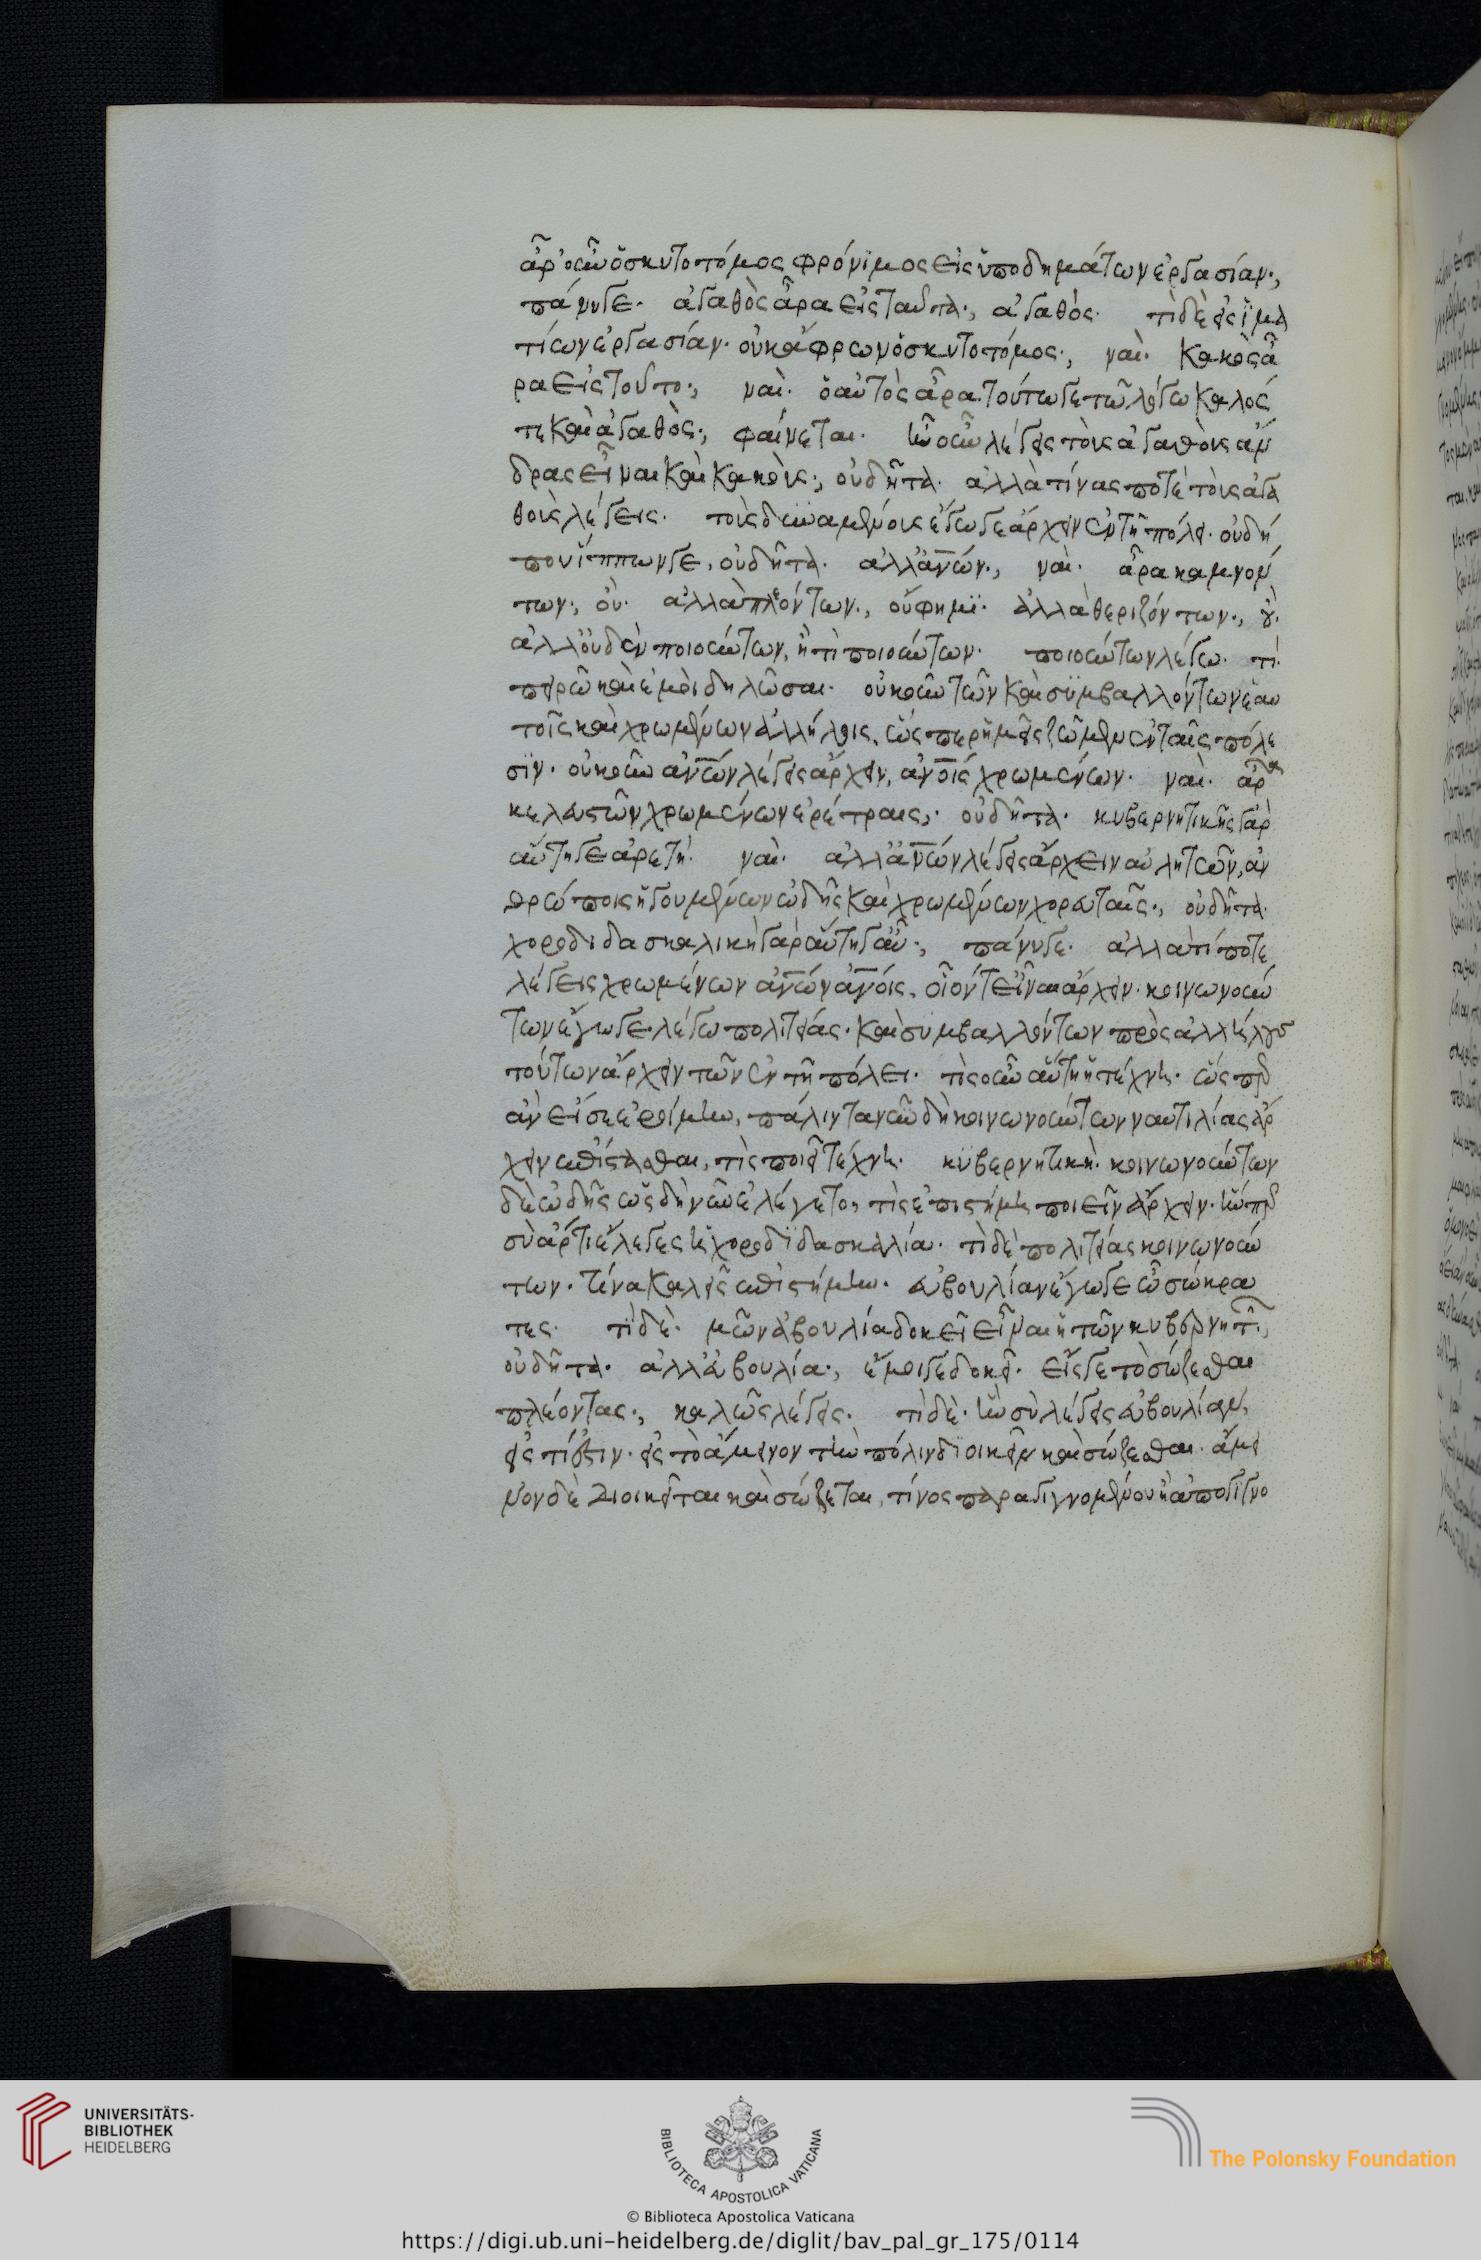 ἆρ' οὖν ὁ σκυτοτόμος φρόνιμος εἰς ὑποδημάτων ἐργασίαν·,
πάνυ γε· ἀγαθὸς ἄρα εἰς ταῦτα·, ἀγαθός· τί δὲ εἰς ἱμα
τίων ἐργασίαν· οὐκ ἄφρων ὁ σκυτοτόμος·, ναί· κακὸς ἄ
ρα εἰς τοῦτο·, ναί· ὁ αὐτὸς ἄρα τούτω γε τῶ λόγω κακός
τε καὶ ἀγαθός·, φαίνεται· ἦ οὖν λέγεις τοὺς ἀγαθοὺς ἄν
δρας εἶναι καὶ κακούς·, οὐ δῆτα· ἀλλὰ τίνας ποτὲ τοὺς ἀγα
θοὺς λέγεις· τοὺς δυναμένους ἔγωγε ἄρχειν ἐν τῆ πόλει· οὐ δή
που ἵππων γε, οὐ δῆτα· ἀλλ' ἀνων·, ναί· ἆρα καμνόν
των·, οὔ· ἀλλὰ πλεόντων·, οὔ φημι· ἀλλὰ θεριζόντων·, οὔ·
ἀλλ' οὐδὲν ποιούντων, ἤ τι ποιούντων· ποιούντων λέγω· τί·
πειρῶ καὶ ἐμοὶ δηλῶσαι· οὐκοῦν τῶν καὶ συμβαλλόντων ἑαυ
τοῖς καὶ χρωμένων ἀλλήλοις, ὥσπερ ἡμεῖς ζῶμεν ἐν ταῖς πόλε
σιν· οὐκοῦν ἀνων λέγεις ἄρχειν, ἀνοις χρωμένων· ναί· ἆρα
κελευστῶν χρωμένων ἐρέταις·, οὐ δῆτα· κυβερνητικῆς γὰρ
αὕτη γε ἀρετή· ναί· ἀλλ' ἀνων λέγεις ἄρχειν αὐλητῶν, ἀν
θρώποις ἡγουμένων ὠδῆς καὶ χρωμένων χορευταῖς·, οὐ δῆτα·
χοροδιδασκαλικὴ γὰρ αὕτη γ' αὖ·, πάνυ γε· ἀλλὰ τί ποτε
λέγεις χρωμένων ἀνων ἀνοις, οἷόν τε εἶναι ἄρχειν· κοινωνούν
των ἔγωγε λέγω πολιτείας· καὶ συμβαλλόντων πρὸς ἀλλήλους
τούτων ἄρχειν τῶν ἐν τῆ πόλει· τίς οὖν αὕτη ἡ τέχνη· ὥσπερ
ἂν εἴ σε ἐροίμην, πάλιν τὰ νῦν δὴ κοινωνούντων ναυτιλίας ἄρ
χειν ἐπίστασθαι, τίς ποιεῖ τέχνη· κυβερνητική· κοινωνούντων
δὲ ὠδῆς ὡς δὴ νῦν ἐλέγετο, τίς ἐπιστήμη ποιεῖ ἄρχειν· ἥνπερ
σὺ ἄρτι ἔλεγες ἡ χοροδιδασκαλία· τί δὲ πολιτείας κοινωνούν
των· τίνα καλεῖς ἐπιστήμην· εὐβουλίαν ἔγωγε ὦ σώκρα
τες· τί δέ· μῶν ἀβουλία δοκεῖ εἶναι ἡ τῶν κυβερνητῶν,
οὐ δῆτα· ἀλλ' εὐβουλία·, ἔμοιγε δοκεῖ· εἴς γε τὸ σώζεσθαι
πλέοντας·, καλῶς λέγεις· τί δέ· ἣν σὺ λέγεις εὐβουλίαν,
εἰς τί ἐστιν· εἰς τὸ ἄμεινον τὴν πόλιν διοικεῖν καὶ σώζεσθαι· ἄμει
νον δὲ διοικεῖται καὶ σώζεται, τίνος παραγιγνομένου ἢ ἀπογιγνο
UNIVERSITÄTS-
BIBLIOTHEK
HEIDELBERG
BIBLIOTECA APOSTOLICA VATICANA
The Polonsky Foundation
© Biblioteca Apostolica Vaticana
https://digi.ub.uni-heidelberg.de/diglit/bav_pal_gr_175/0114